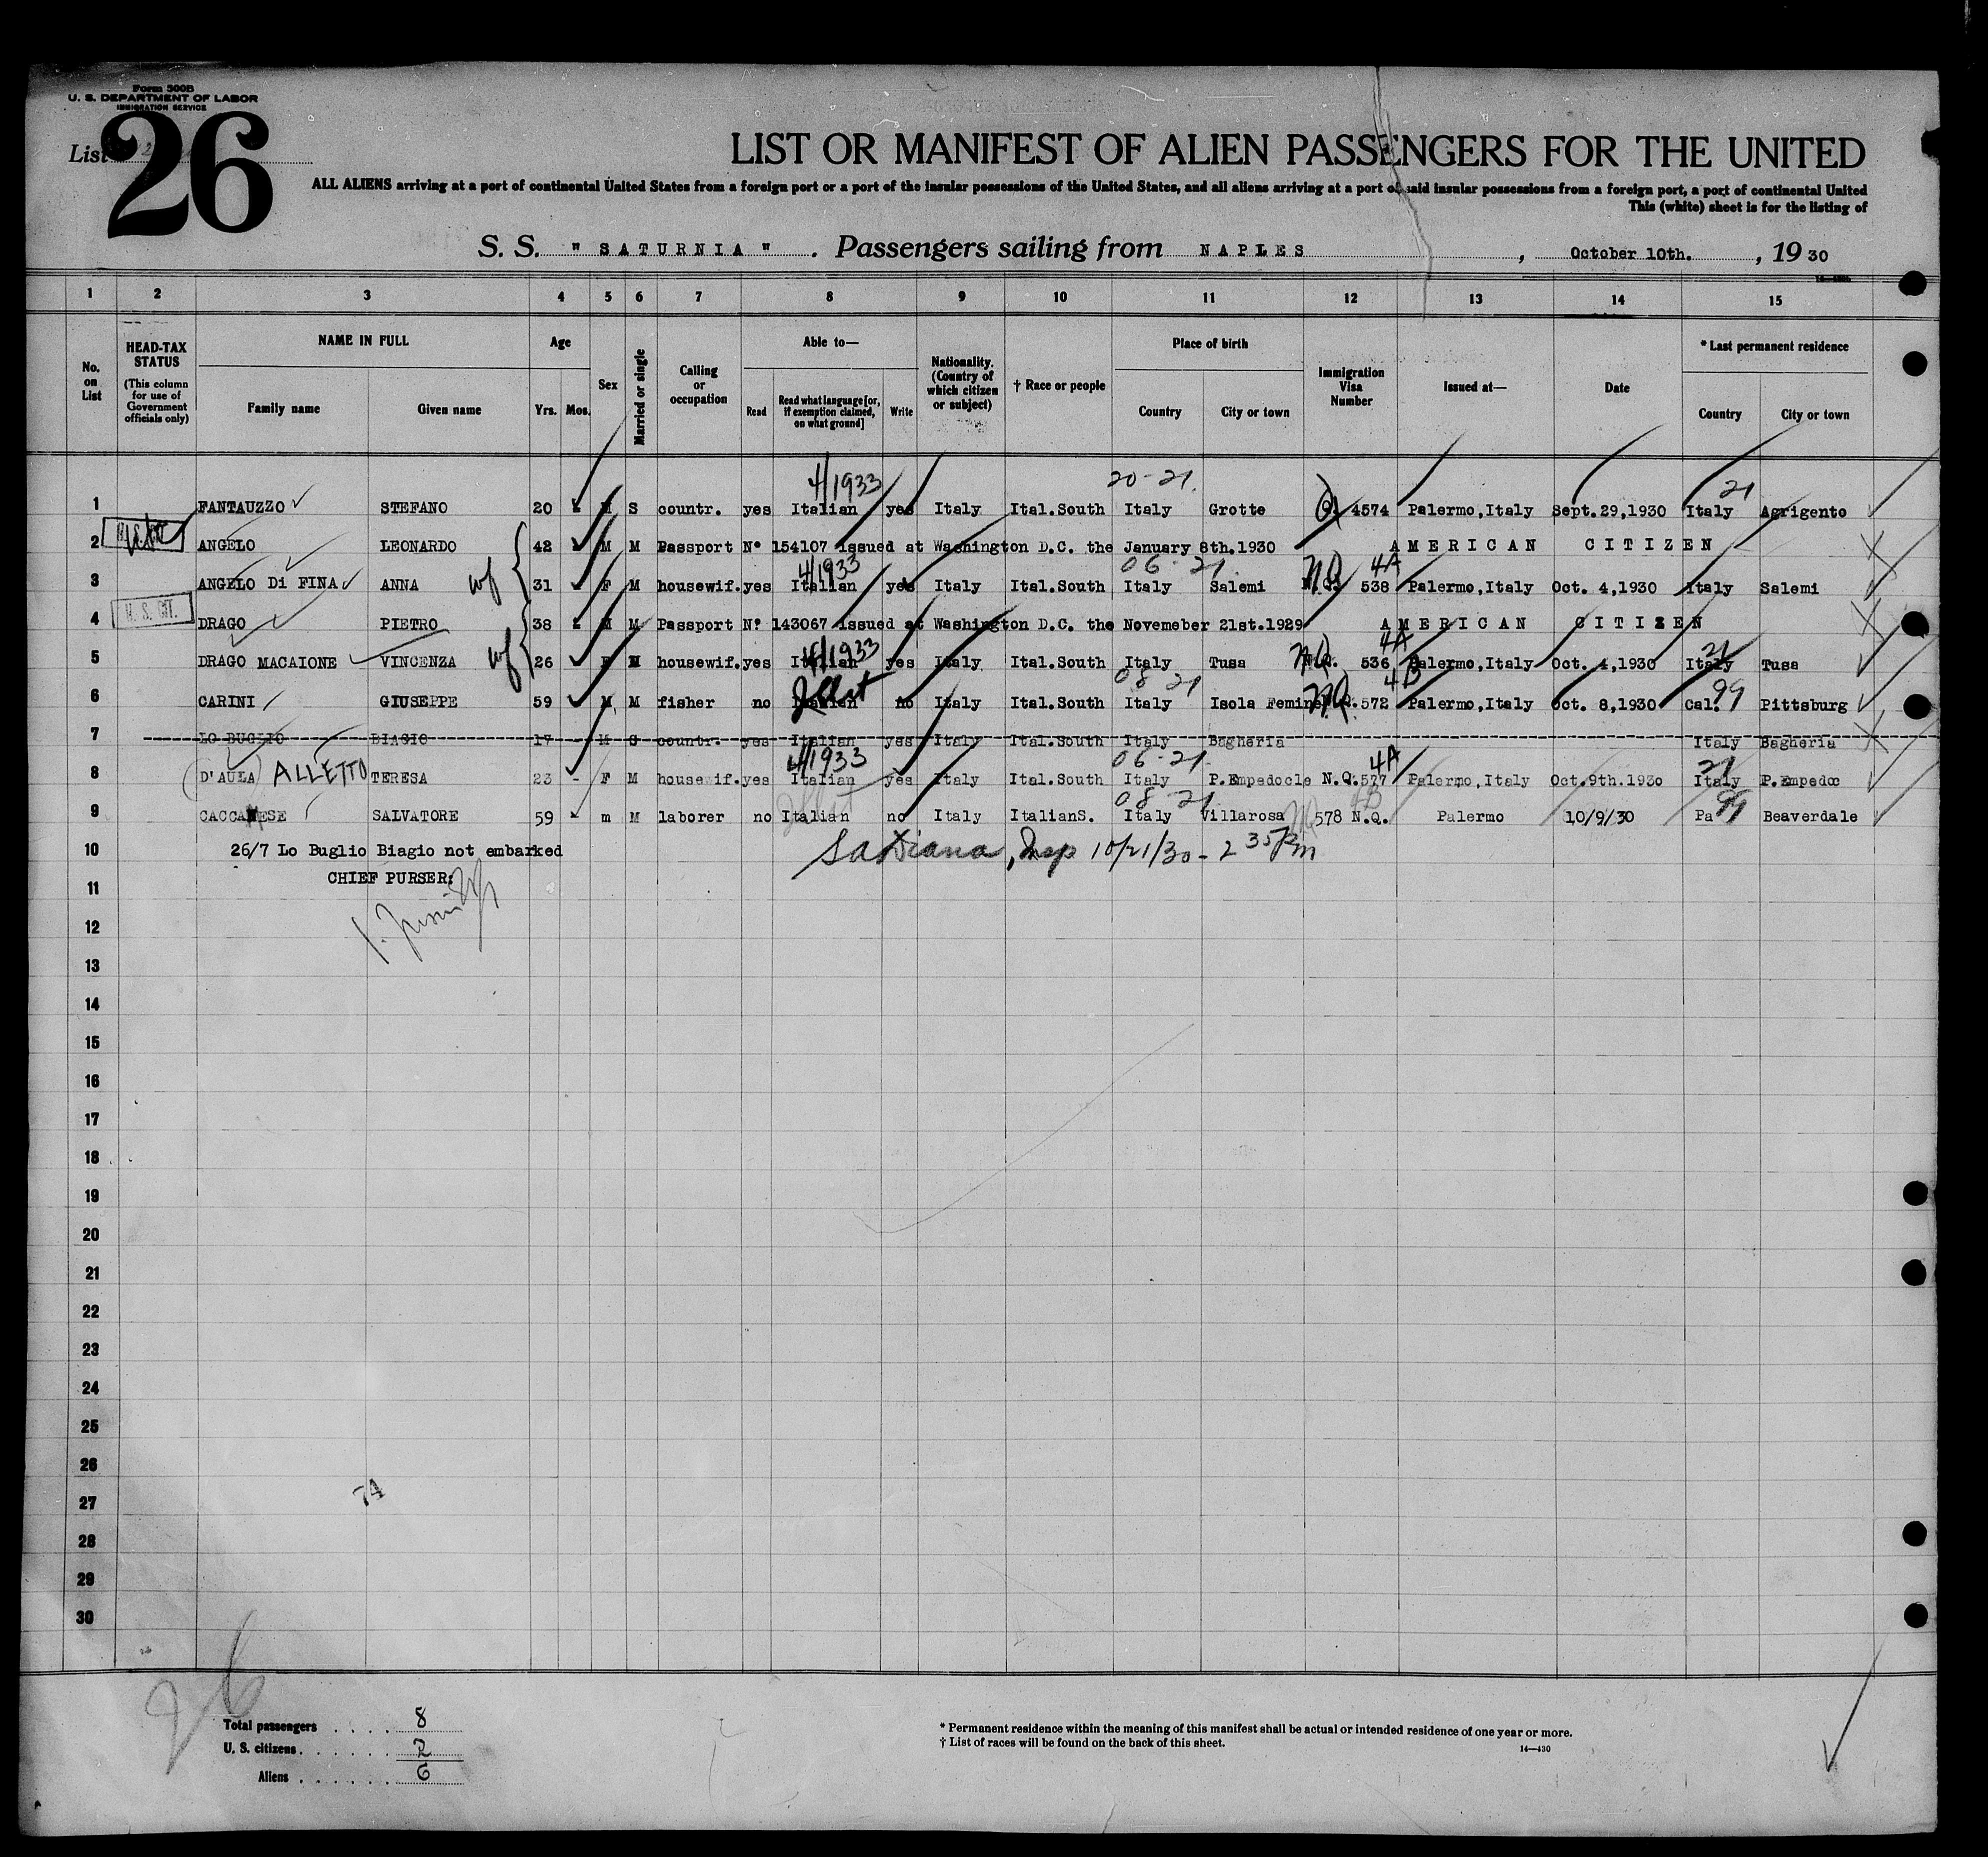 Form 500B
U. S. DEPARTMENT OF LABOR
IMMIGRATION SERVICE
List 26
LIST OR MANIFEST OF ALIEN PASSENGERS FOR THE UNITED
ALL ALIENS arriving at a port of continental United States from a foreign port or a port of the insular possessions of the United States, and all aliens arriving at a port of said insular possessions from a foreign port, a port of continental United
This (white) sheet is for the listing of
S. S. " SATURNIA " . Passengers sailing from NAPLES , October 10th. , 19 30
1 2 3 4 5 6 7 8 9 10 11 12 13 14 15
No. on List
HEAD-TAX STATUS (This column for use of Government officials only)
NAME IN FULL Family name Given name
Age Yrs. Mos.
Sex
Married or single
Calling or occupation
Able to— Read Read what language [or, if exemption claimed, on what ground] Write
Nationality. (Country of which citizen or subject)
† Race or people
Place of birth Country City or town
Immigration Visa Number
Issued at—
Date
* Last permanent residence Country City or town
4/1933 20-21. 21
1 FANTAUZZO STEFANO 20 - M S countr. yes Italian yes Italy Ital.South Italy Grotte Q. 4574 Palermo,Italy Sept.29,1930 Italy Agrigento
2 ANGELO LEONARDO 42 - M M Passport N° 154107 issued at Washington D.C. the January 8th.1930 AMERICAN CITIZEN
4/1933 06-21. 4A
3 ANGELO Di FINA ANNA wf 31 F M housewif. yes Italian yes Italy Ital.South Italy Salemi N.Q. 538 Palermo,Italy Oct. 4,1930 Italy Salemi
U. S. CIT.
4 DRAGO PIETRO 38 - M M Passport N° 143067 issued at Washington D.C. the Novemeber 21st.1929 AMERICAN CITIZEN
4/1933 4A 21
5 DRAGO MACAIONE VINCENZA wf 26 F M housewif. yes Italian yes Italy Ital.South Italy Tusa N.Q. 536 Palermo,Italy Oct. 4,1930 Italy Tusa
08 21 4B 99
6 CARINI GIUSEPPE 59 M M fisher no Italian no Italy Ital.South Italy Isola Femine N.Q.572 Palermo,Italy Oct. 8,1930 Cal. Pittsburg
7 LO BUGLIO BIAGIO 17 M S countr. yes Italian yes Italy Ital.South Italy Bagheria Italy Bagheria
4/1933 06-21. 4A 21
8 D'AULA ALLETTO TERESA 23 - F M housewif. yes Italian yes Italy Ital.South Italy P.Empedocle N.Q.577 Palermo,Italy Oct.9th.1930 Italy P.Empedoc
08 21 4B 99
9 CACCAMESE SALVATORE 59 - m M laborer no Italian no Italy ItalianS. Italy Villarosa 578 N.Q. Palermo 10/9/30 Pa Beaverdale
10 26/7 Lo Buglio Biagio not embarked
Insp 10/21/30 - 2 35 Pm
CHIEF PURSER:
11
12
13
14
15
16
17
18
19
20
21
22
23
24
25
26
74
27
28
29
30
26
Total passengers . . . . 8
U. S. citizens . . . . . . 2
Aliens . . . . . . 6
* Permanent residence within the meaning of this manifest shall be actual or intended residence of one year or more.
† List of races will be found on the back of this sheet.
14—430